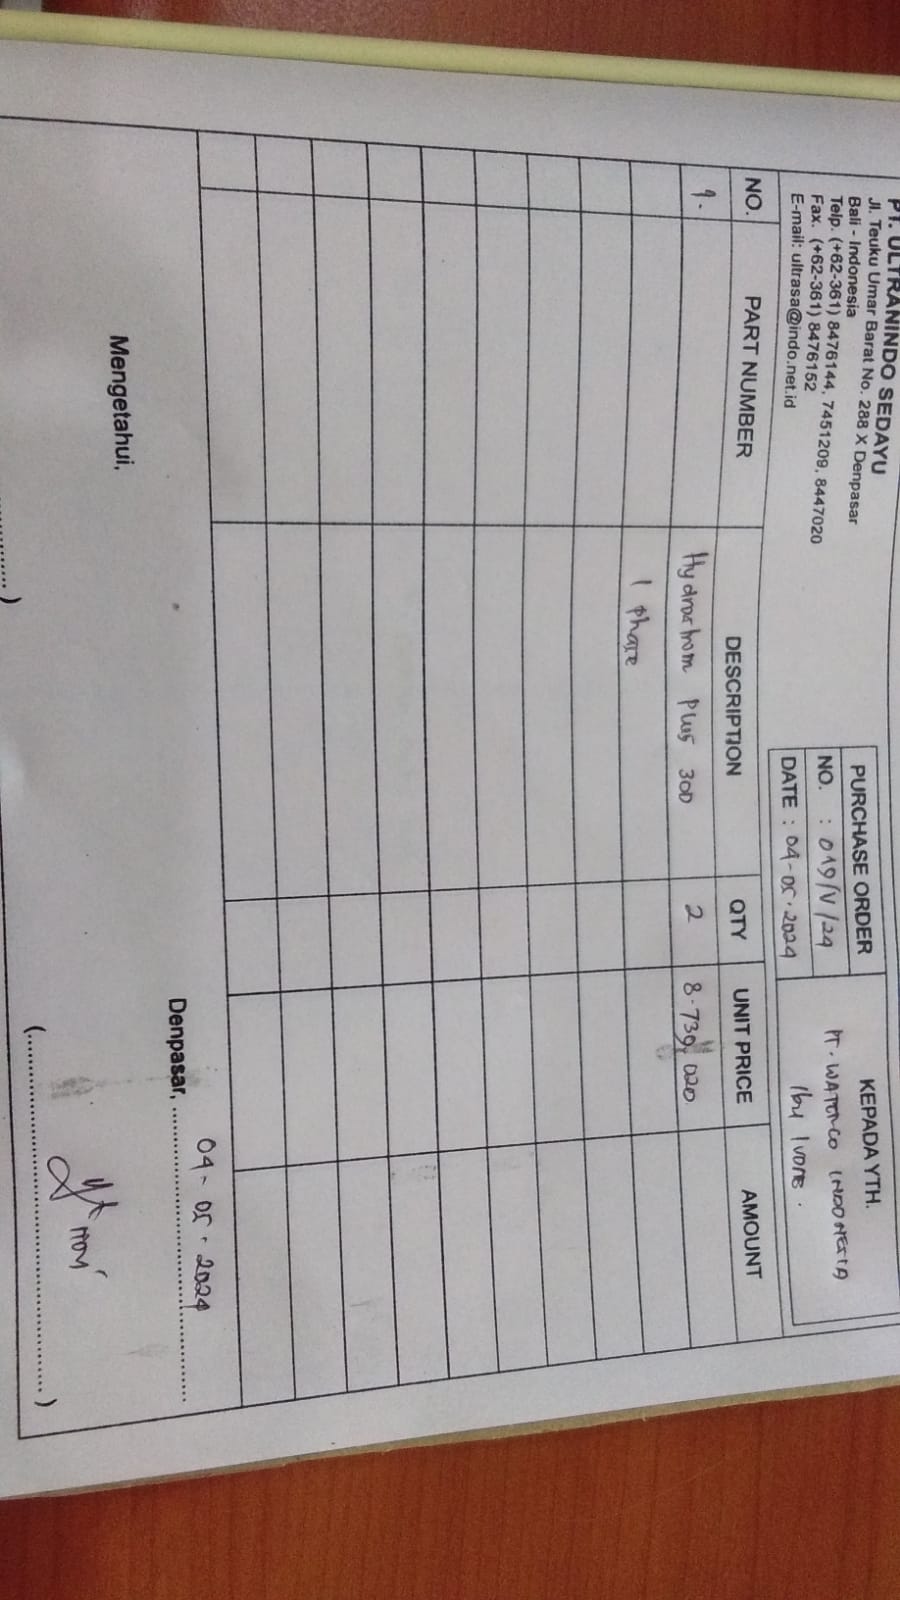 PT. ULTRANINDO SEDAYU
Jl. Teuku Umar Barat No. 288 X Denpasar
Bali - Indonesia
Telp. (+62-361) 8476144, 7451209, 8447020
Fax. (+62-361) 8476152
E-mail: ultrasa@indo.net.id
PURCHASE ORDER
NO. : 019/V/24
DATE : 04-05-2024
KEPADA YTH.
PT. WATERCO INDONESIA
Ibu Ivone.
NO. PART NUMBER DESCRIPTION QTY UNIT PRICE AMOUNT
1. Hydrostrom Plus 300 2 8.739.020
1 phase
04-05-2024
Denpasar, ..............................
Mengetahui,
(..............................)